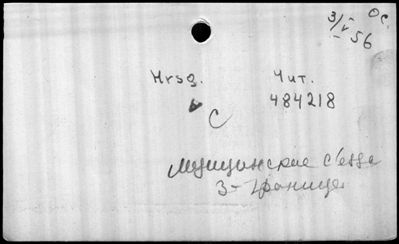 3/V 56 Ос.
Hrsg. Чит.
484218
С
Медицинские съезды
З-Границе